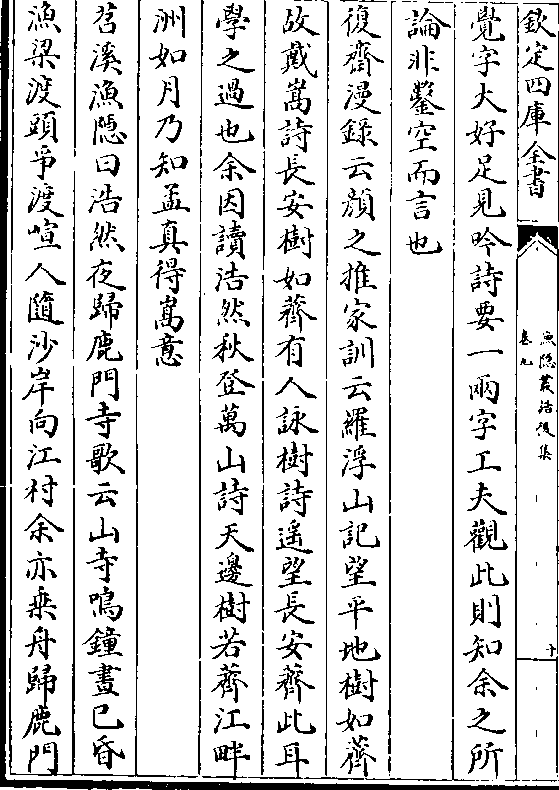 欽定四庫全書
漁隠叢話後集
卷九
十
覺字大好足見吟詩要一兩字工夫觀此則知余之所
論非鑿空而言也
復齋漫錄云顔之推家訓云羅浮山記望平地樹如薺
故戴嵩詩長安樹如薺有人詠樹詩遥望長安薺此耳
學之過也余因讀浩然秋登萬山詩天邊樹若薺江畔
洲如月乃知孟真得嵩意
苕溪漁隠曰浩然夜歸鹿門寺歌云山寺鳴鐘晝已昏
漁梁渡頭爭渡喧人隨沙岸向江村余亦乗舟歸鹿門